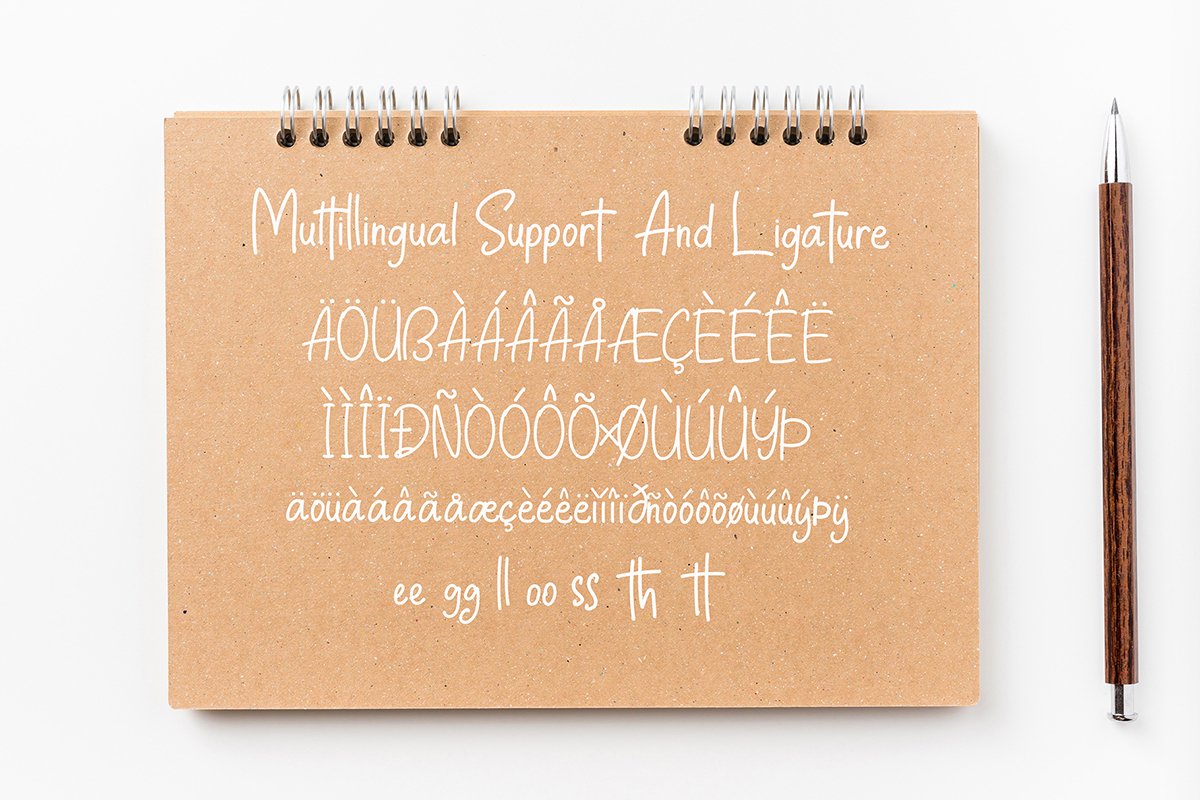 Muttillingual Support And Ligature
ÄÖÜßÀÁÂÃÅÆÇÈÉÊË
ÌÌÎÏÐÑÒÓÔÕ×ØÙÚÛÝÞ
äöüàáâãåæçèéêëìíîïðñòóôõøùúûýþÿ
ee gg ll oo ss th tt